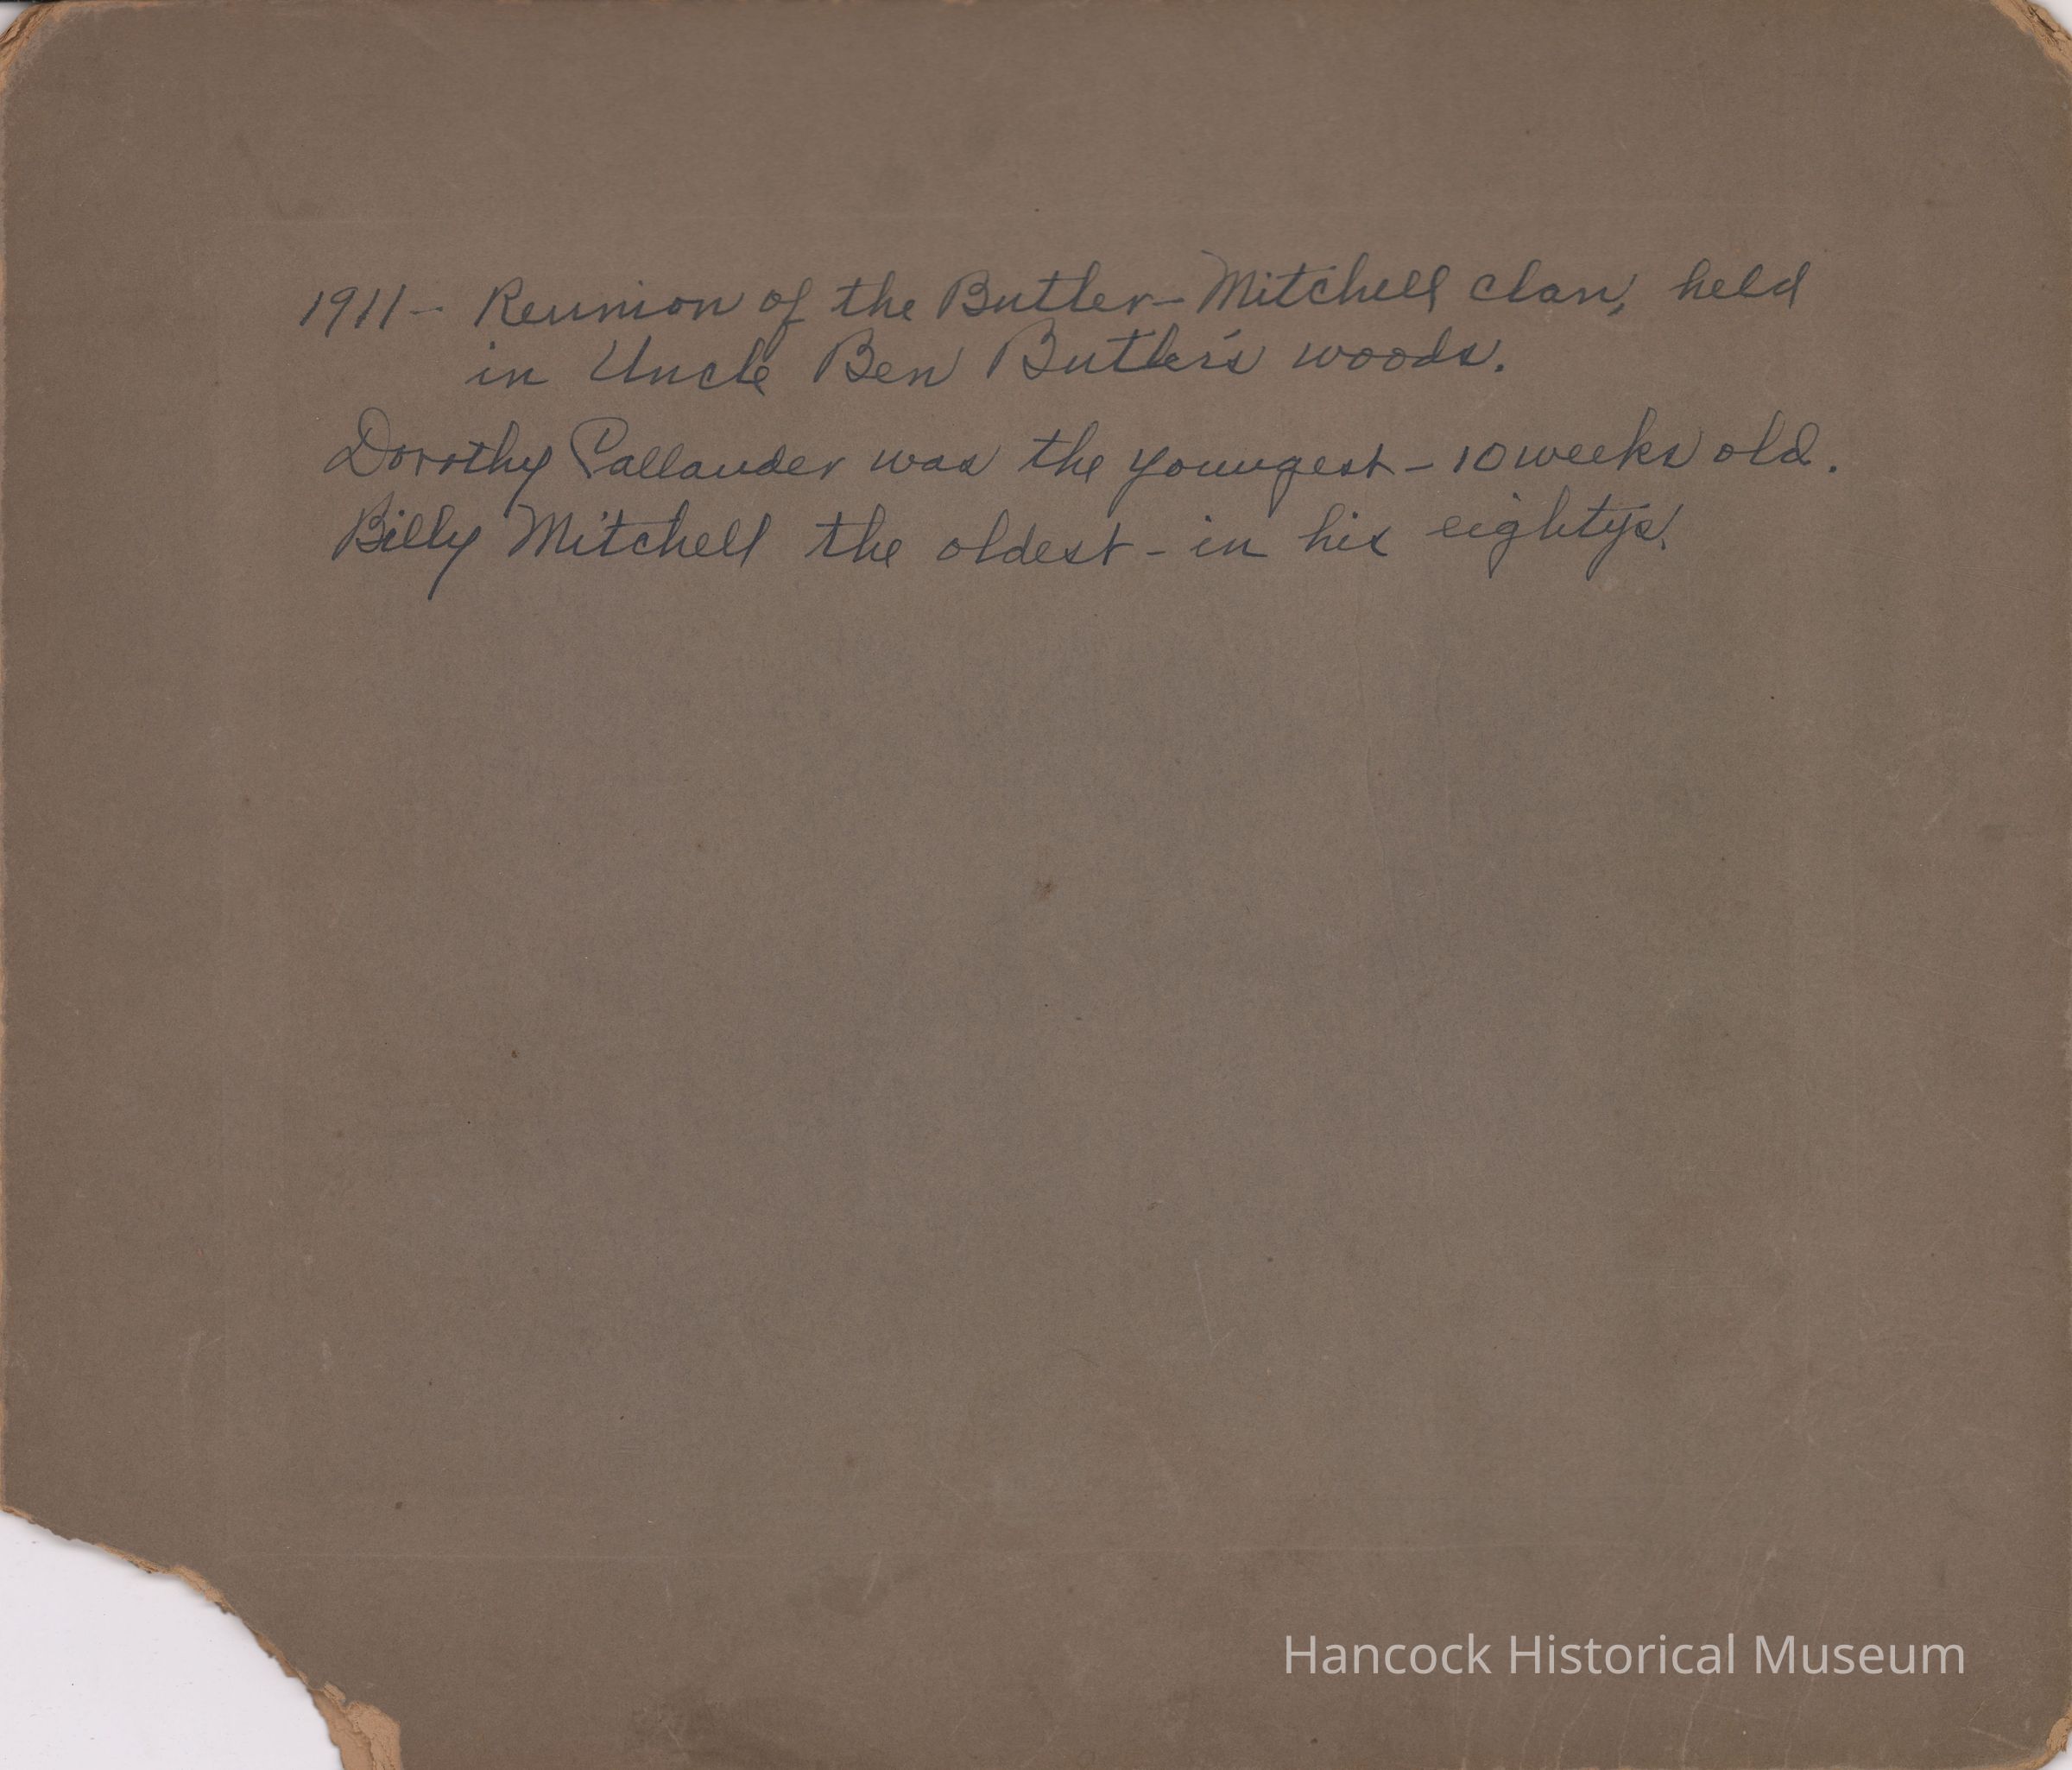 1911 - Reunion of the Butler-Mitchell clan, held
in Uncle Ben Butler's woods.
Dorothy Pallander was the youngest - 10 weeks old.
Billy Mitchell the oldest - in his eightys.
Hancock Historical Museum